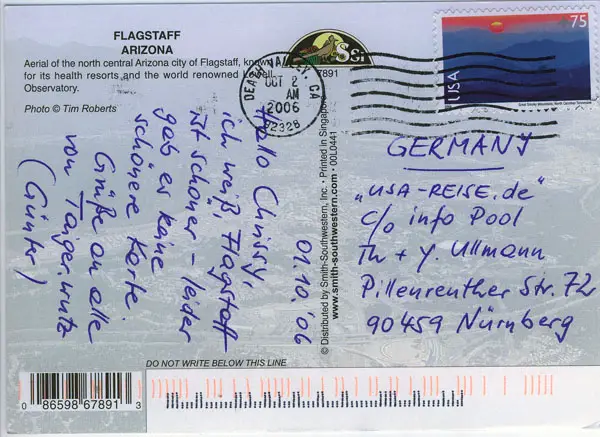 FLAGSTAFF
ARIZONA
Aerial of the north central Arizona city of Flagstaff, known
for its health resorts and the world renowned Lowell
Observatory.
Photo © Tim Roberts
SSI
67891
DEATH VALLEY, CA
OCT 2
AM
2006
92328
75
USA
Great Smoky Mountains, North Carolina-Tennessee
01.10.'06
Hallo Chrissy,
ich weiß, Flagstaff
ist schöner – leider
gab es keine
schönere Karte.
Grüße an alle
von Tanger.wutz
(Günter)
© Distributed by Smith-Southwestern, Inc. • Printed in Singapore
www.smith-southwestern.com • 00L0441
GERMANY
„USA-REISE.de"
c/o info Pool
Th + Y. Ullmann
Pillenreuther Str. 72
90459 Nürnberg
DO NOT WRITE BELOW THIS LINE
0 86598 67891 3